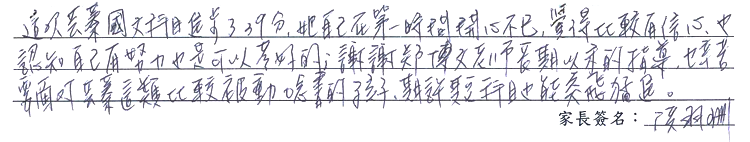 這次奕蓁國文科目進步了39分，她自己在第一時間開心不已，覺得比較有信心，也
認知自己有努力也是可以考好的；謝謝鄭博文老師長期以來的指導，也辛苦
要面對奕蓁這類比較被動唸書的孩子，期許其它科目也能突飛猛進。
家長簽名：